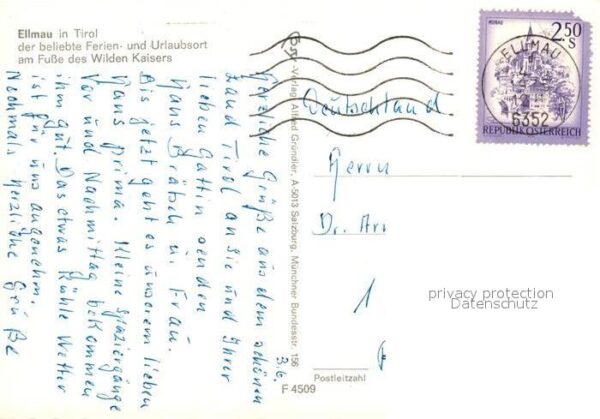 Ellmau in Tirol
der beliebte Ferien- und Urlaubsort
am Fuße des Wilden Kaisers
3.6.
Herzliche Grüße aus dem schönen
Land Tirol an Sie und Ihrer
lieben Gattin senden
Hans Brätsch u. Frau.
Bis jetzt geht es unserem lieben
Hans prima. Kleine Spaziergänge
Vor und Nachmittag bekommen
ihm gut. Das etwas kühle Wetter
ist für uns angenehm.
Nochmals herzliche Grüße
Verlag Alfred Gründler, A-5013 Salzburg, Münchner Bundesstr. 156
F 4509
MURAU
2.50
S
REPUBLIK ÖSTERREICH
ELLMAU
6352
Deutschland
Herrn
Dr.
1
Postleitzahl
privacy protection
Datenschutz